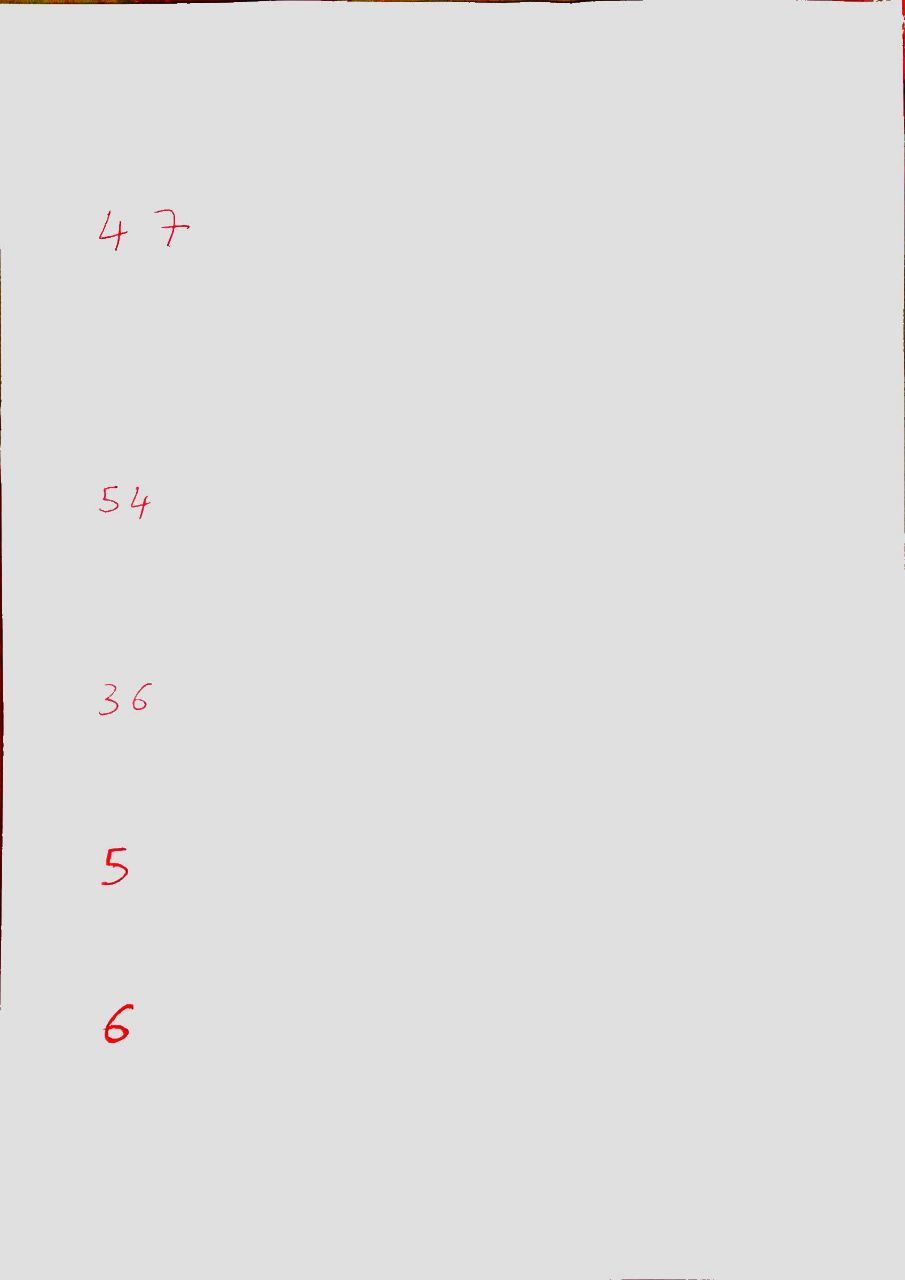 4 7
54
36
5
6